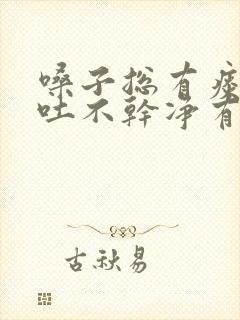 嗓子总有痰
吐不幹净有
古秋易